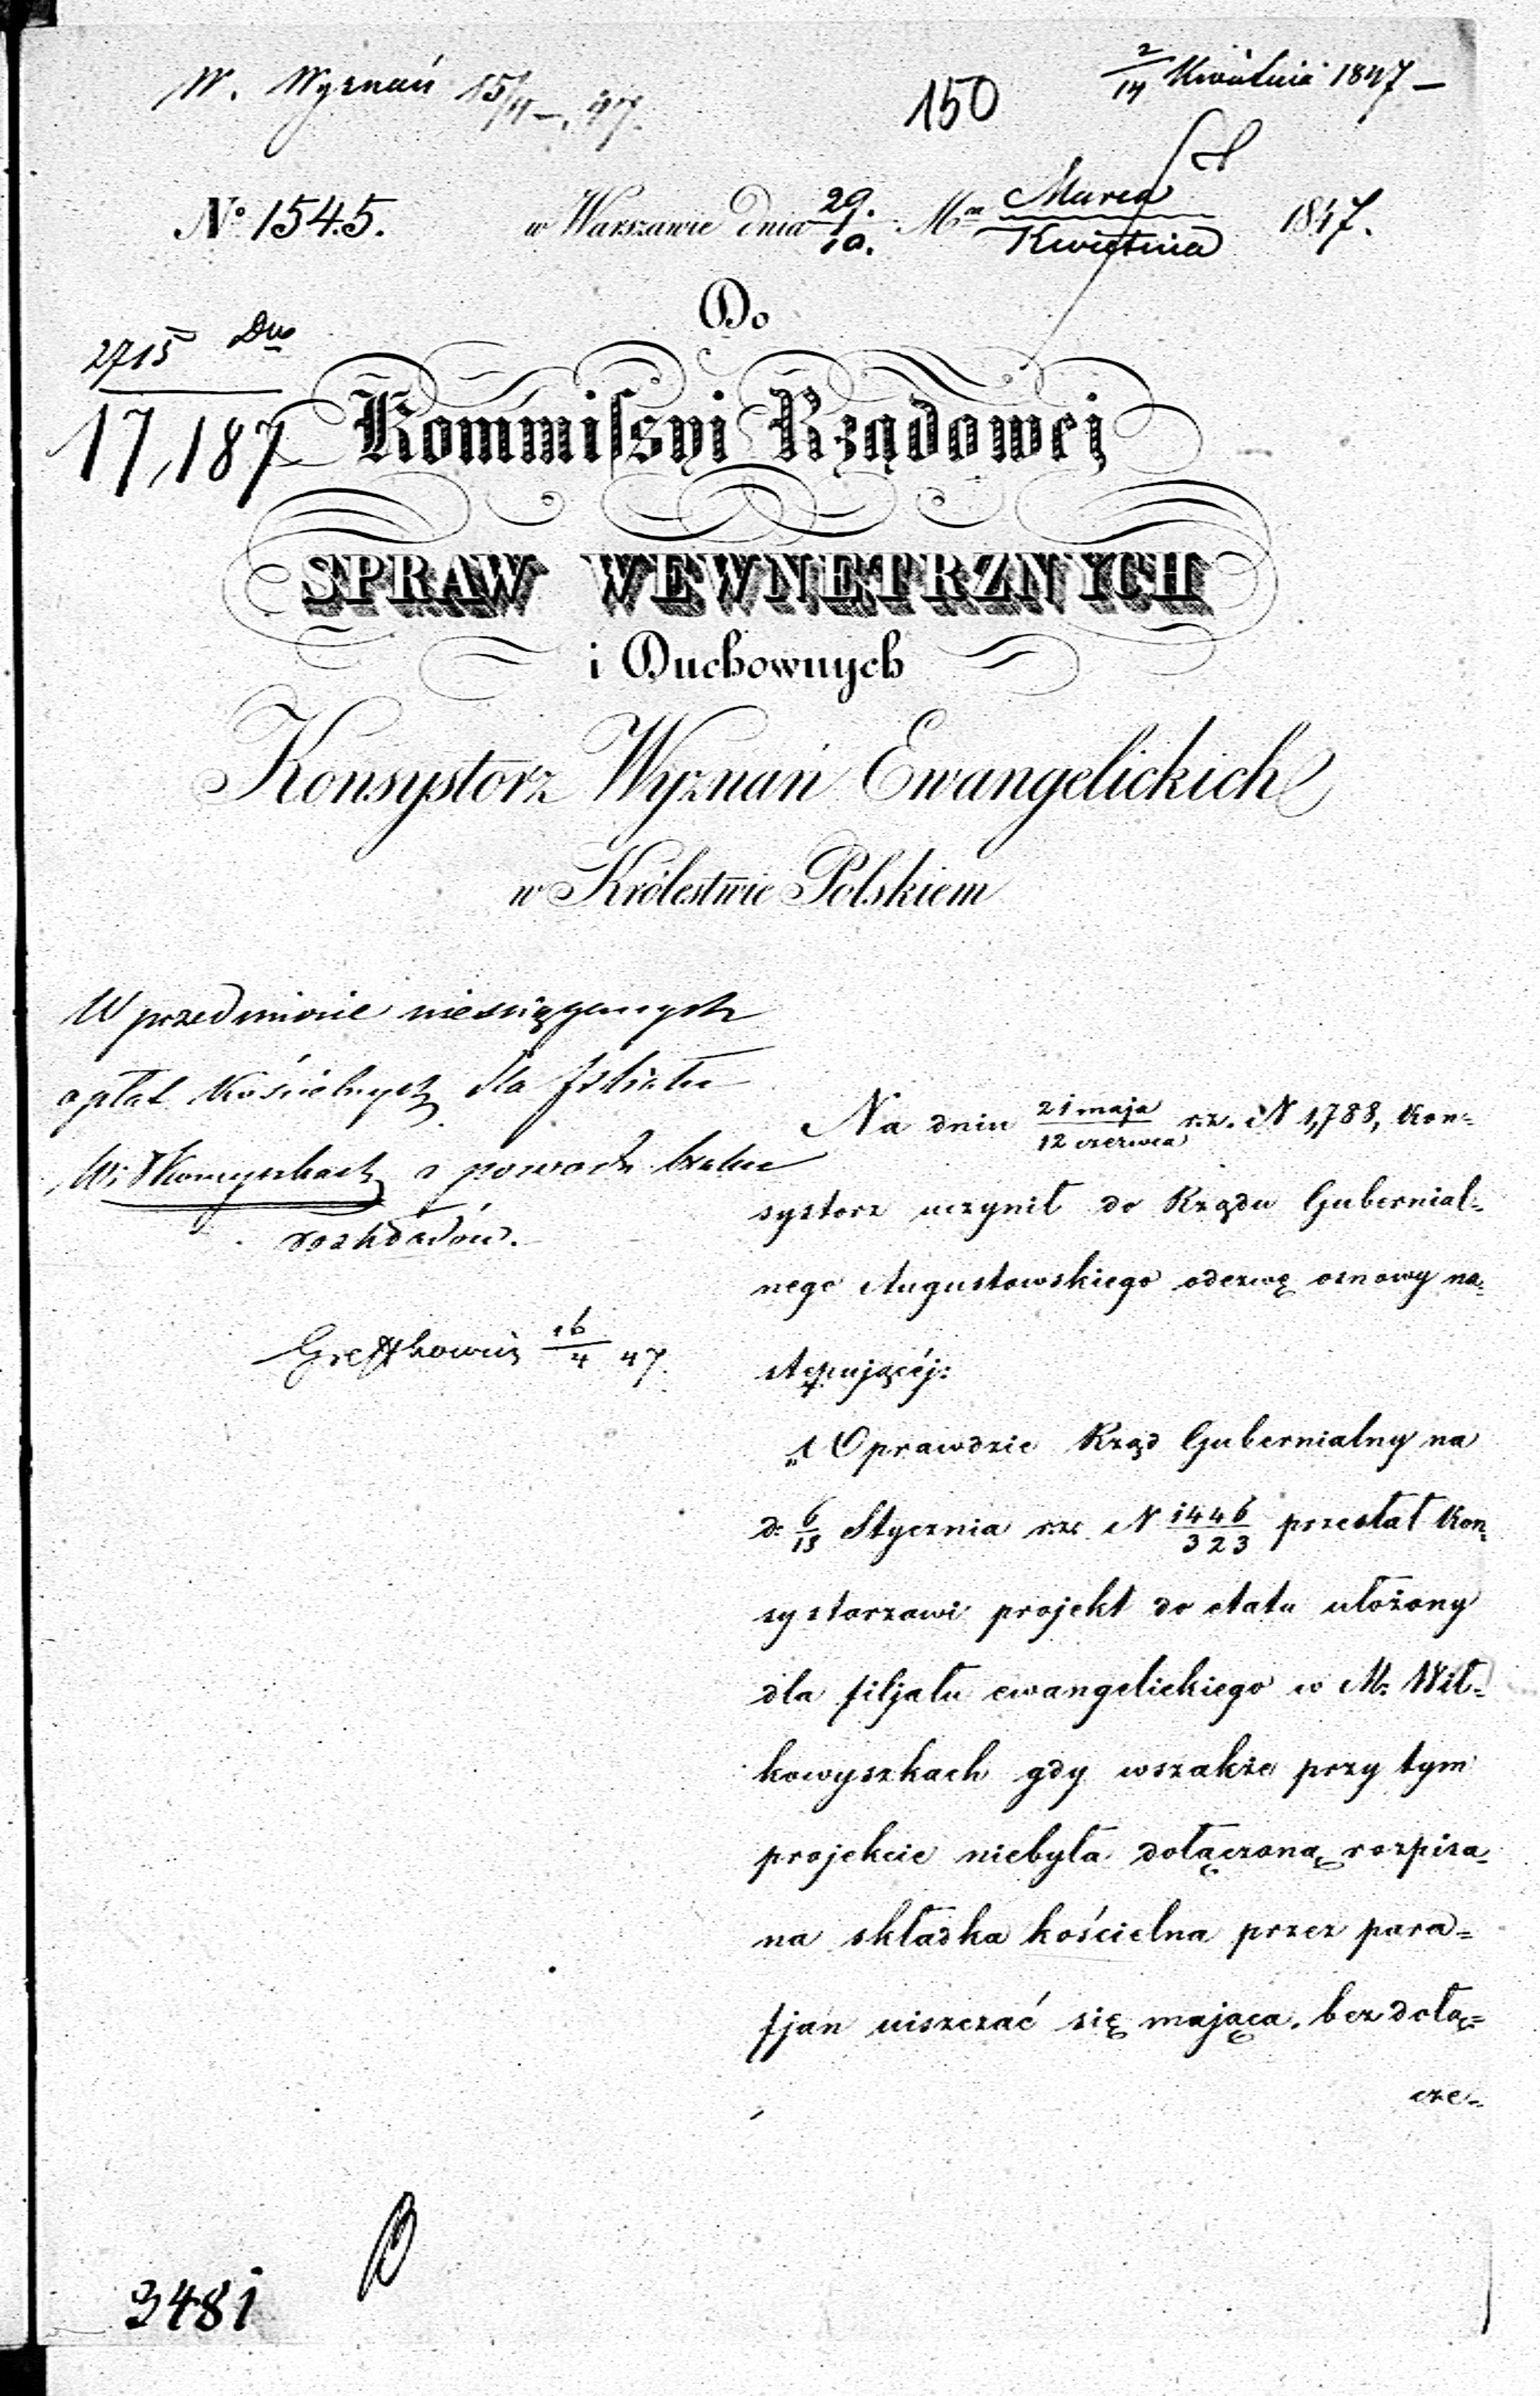 W. Wyznań 15/4 – 47.
150
2/14 Kwietnia 1847 –
No 1545. w Warszawie dnia 29./10. Mca Marca/Kwietnia 1847.
Do
2715 Dw
17,187
Kommissyi Rządowej
SPRAW WEWNĘTRZNYCH
i Duchownych
Konsystorz Wyznań Ewangelickich
w Królestwie Polskiem
W przedmiocie nieściągzonych
opłat Kościelnych dla filiału
W: Wkowyszkach z powodu braku
rozkładów.
16/4 47.
Na dniu 21 maja/12 czerwca r.z. N 1,788, Kon=
systorz uczynił do Rządu Gubernial=
nego Augustowskiego odezwę osnowy na=
stępującéj:
„Wprawdzie Rząd Gubernialny na
d: 6/18 Stycznia r.z. N 1446/323 przesłał Kon=
systorzowi projekt do etatu ułożony
dla filjału ewangelickiego w M: Wił=
kowyszkach gdy wszakże przy tym
projekcie niebyła dołączoną rozpisa=
na składka kościelna przez para=
fjan uiszczać się mająca, bez dołą=
cze=
3481